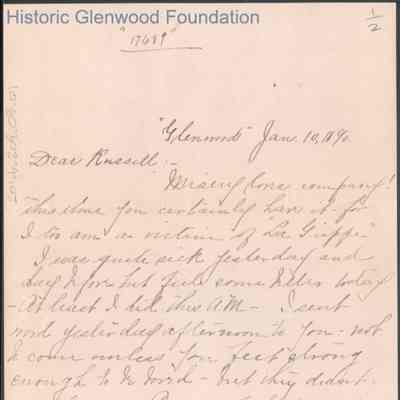 Historic Glenwood Foundation
1/2
"17689"
"Glenwood" Jan. 10, 1890.
Dear Russell:-
Misery loves company!
this time you certainly have it - for
I too am a victim of "La Grippe"
I was quite sick yesterday and
day before but feel some better today
- At least I did this AM - I sent
word yesterday afternoon to you - not
to come unless you felt strong
enough to - but they didn't